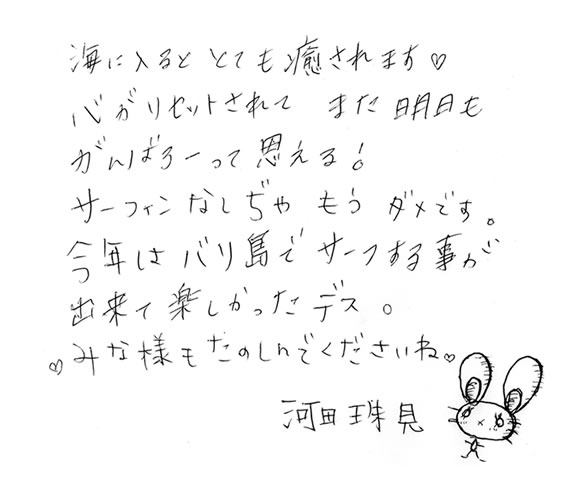 海に入ると とても癒されます♡
心がリセットされて また明日も
がんばろーって思える!
サーフィンなしぢゃ もう ダメです。
今年は バリ島で サーフする事が
出来て楽しかったデス。
♡みな様もたのしんでくださいね♡
河田珠見